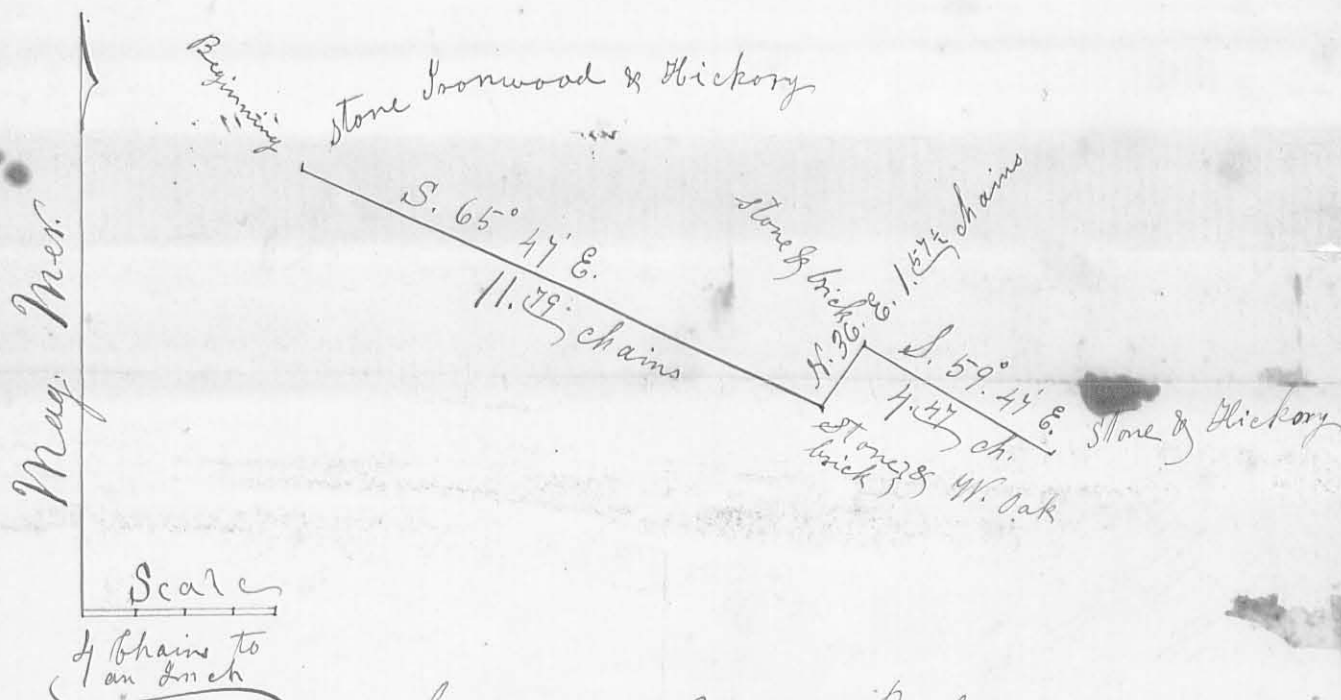 Beginning
stone Ironwood & Hickory
S. 65° 47' E.
11.79 chains
stone & brick
N. 36. E. 1.57½ chains
S. 59° 47' E.
4.47 ch.
stone & Hickory
stone &
brick & W. Oak
Mag. Mer.
Scale
4 Chains to
an Inch